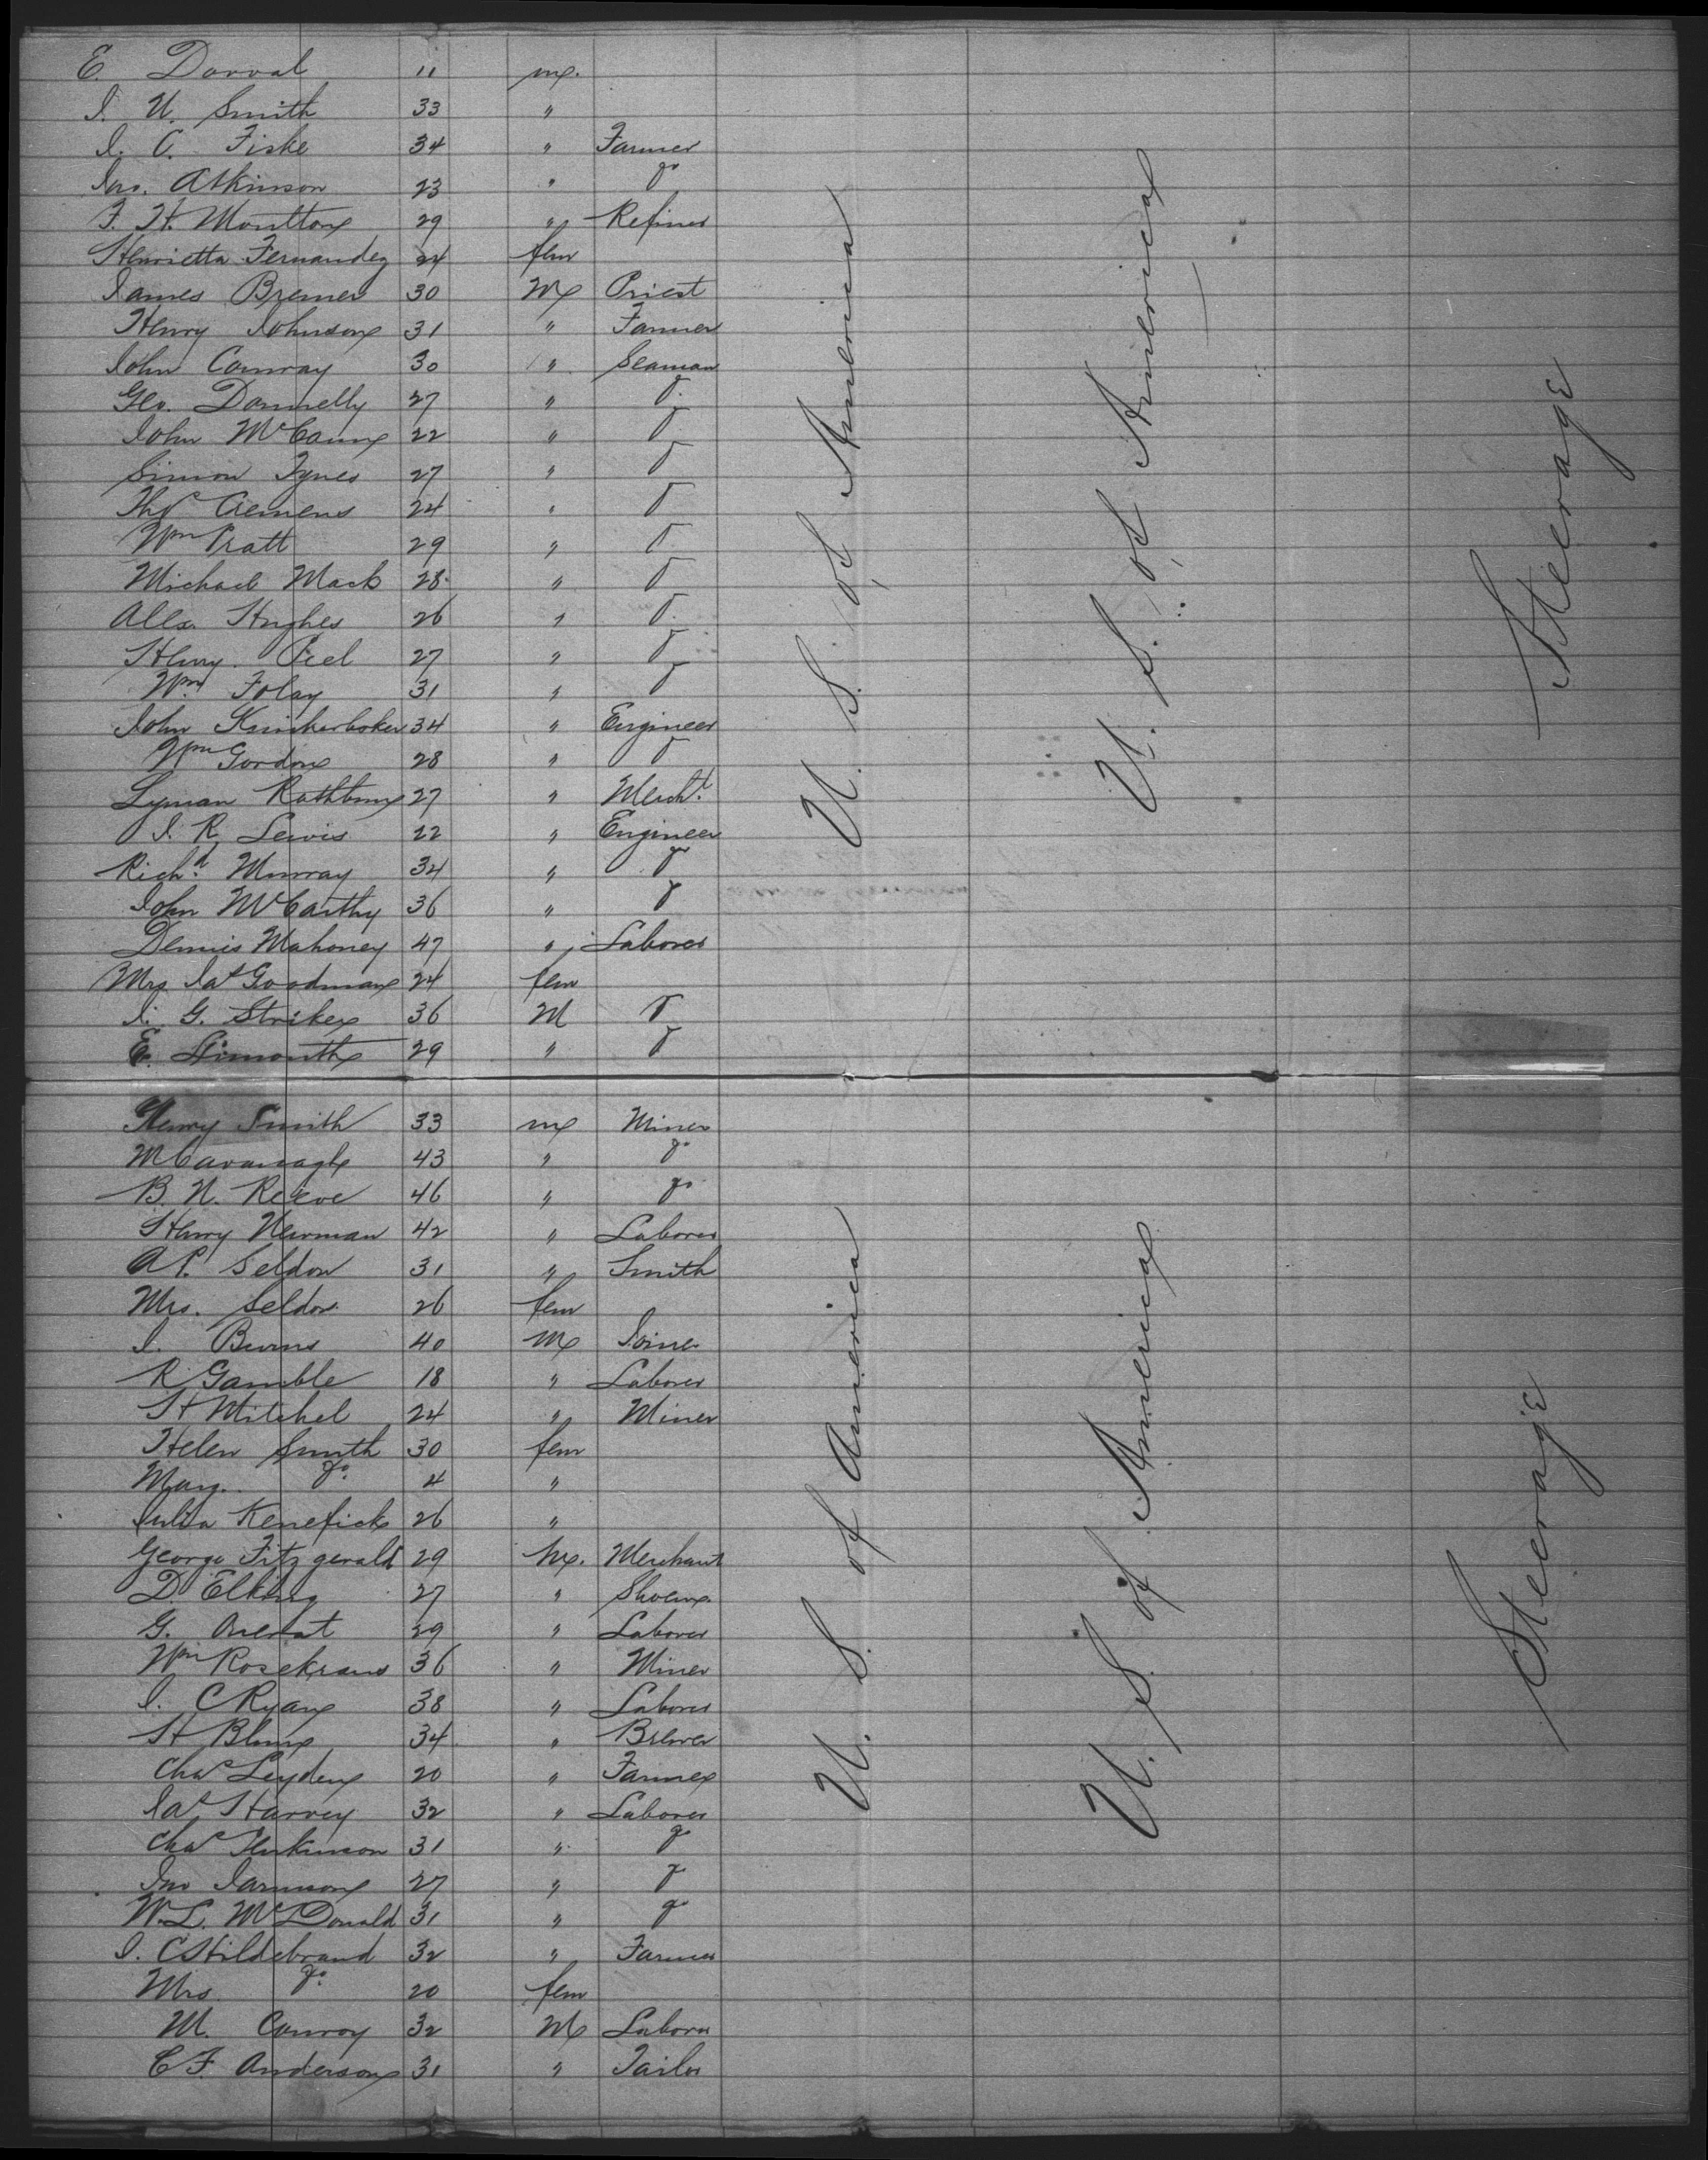 E. Dorval 11 m.
J. N. Smith 33 "
J. C. Fiske 34 " Farmer
Jno. Atkinson 23 " do
F. H. Moulton 29 " Refiner
Henrietta Fernandez 24 fem
James Bremer 30 M Priest
Henry Johnson 31 " Farmer
John Conway 30 " Seaman
Geo. Donnelly 27 " do
John McCann 22 " do
Simon Tynes 27 " do
Thos Clemens 24 " do
Wm Pratt 29 " do
Michael Mack 28 " do
Alex. Hughes 26 " do
Henry Peel 27 " do
Wm Folay 31 " do
John Knickerboker 34 " Engineer
Wm Gordon 28 " do
Lyman Rathbun 27 " Mercht.
J. R. Lewis 22 " Engineer
Richd. Murray 34 " do
John McCarthy 36 " do
Dennis Mahoney 47 " Laborer
Mrs Jas Goodman 24 fem
J. G. Striker 36 M do
E. 29 " do
U. S. of America
U. S. of America
Steerage
Henry Smith 33 m Miner
M Cavanagh 43 " do
B. N. Reeve 46 " do
Henry Newman 42 " Laborer
A P. Seldon 31 " Smith
Mrs. Seldon 26 fem
J. Burns 40 M Joiner
R Gamble 18 " Laborer
H Mitchel 24 " Miner
Helen Smith 30 fem
Mary do. 4 "
Julia Kenefick 26 "
George Fitzgerald 29 M. Merchant
D. Elking 27 " Shoem
G. 29 " Laborer
Wm Rosekrans 36 " Miner
J. C Ryan 38 " Laborer
H Blum 34 " Brewer
Chas Leyden 20 " Farmer
Jas Harvey 32 " Laborer
Chas Jenkinson 31 " do
Jno Jamison 27 " do
W. L. McDonald 31 " do
J. C Hildebrand 32 " Farmer
Mrs. do. 20 fem
M. Conroy 32 M Laborer
C F. Anderson 31 " Tailor
U. S. of America
U. S. of America
Steerage